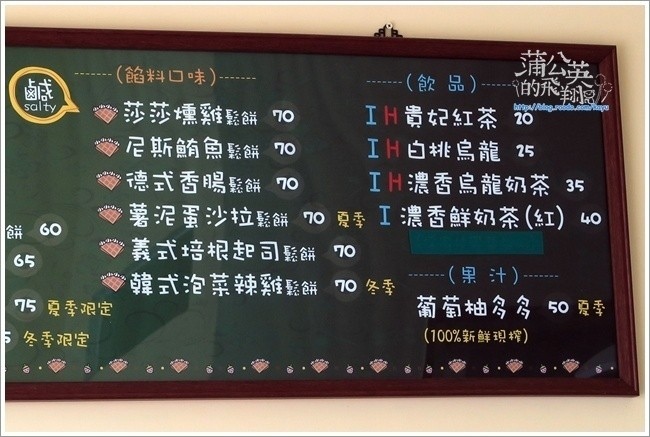 鹹
salty
(餡料口味)
莎莎燻雞鬆餅 70
尼斯鮪魚鬆餅 70
德式香腸鬆餅 70
薯泥蛋沙拉鬆餅 70 夏季
義式培根起司鬆餅 70
韓式泡菜辣雞鬆餅 70 冬季
餅 60
65
75 夏季限定
5 冬季限定
(飲品)
I H 貴妃紅茶 20
I H 白桃烏龍 25
I H 濃香烏龍奶茶 35
I 濃香鮮奶茶(紅) 40
(果汁)
葡萄柚多多 50 夏季
(100%新鮮現榨)
蒲公英
的飛翔